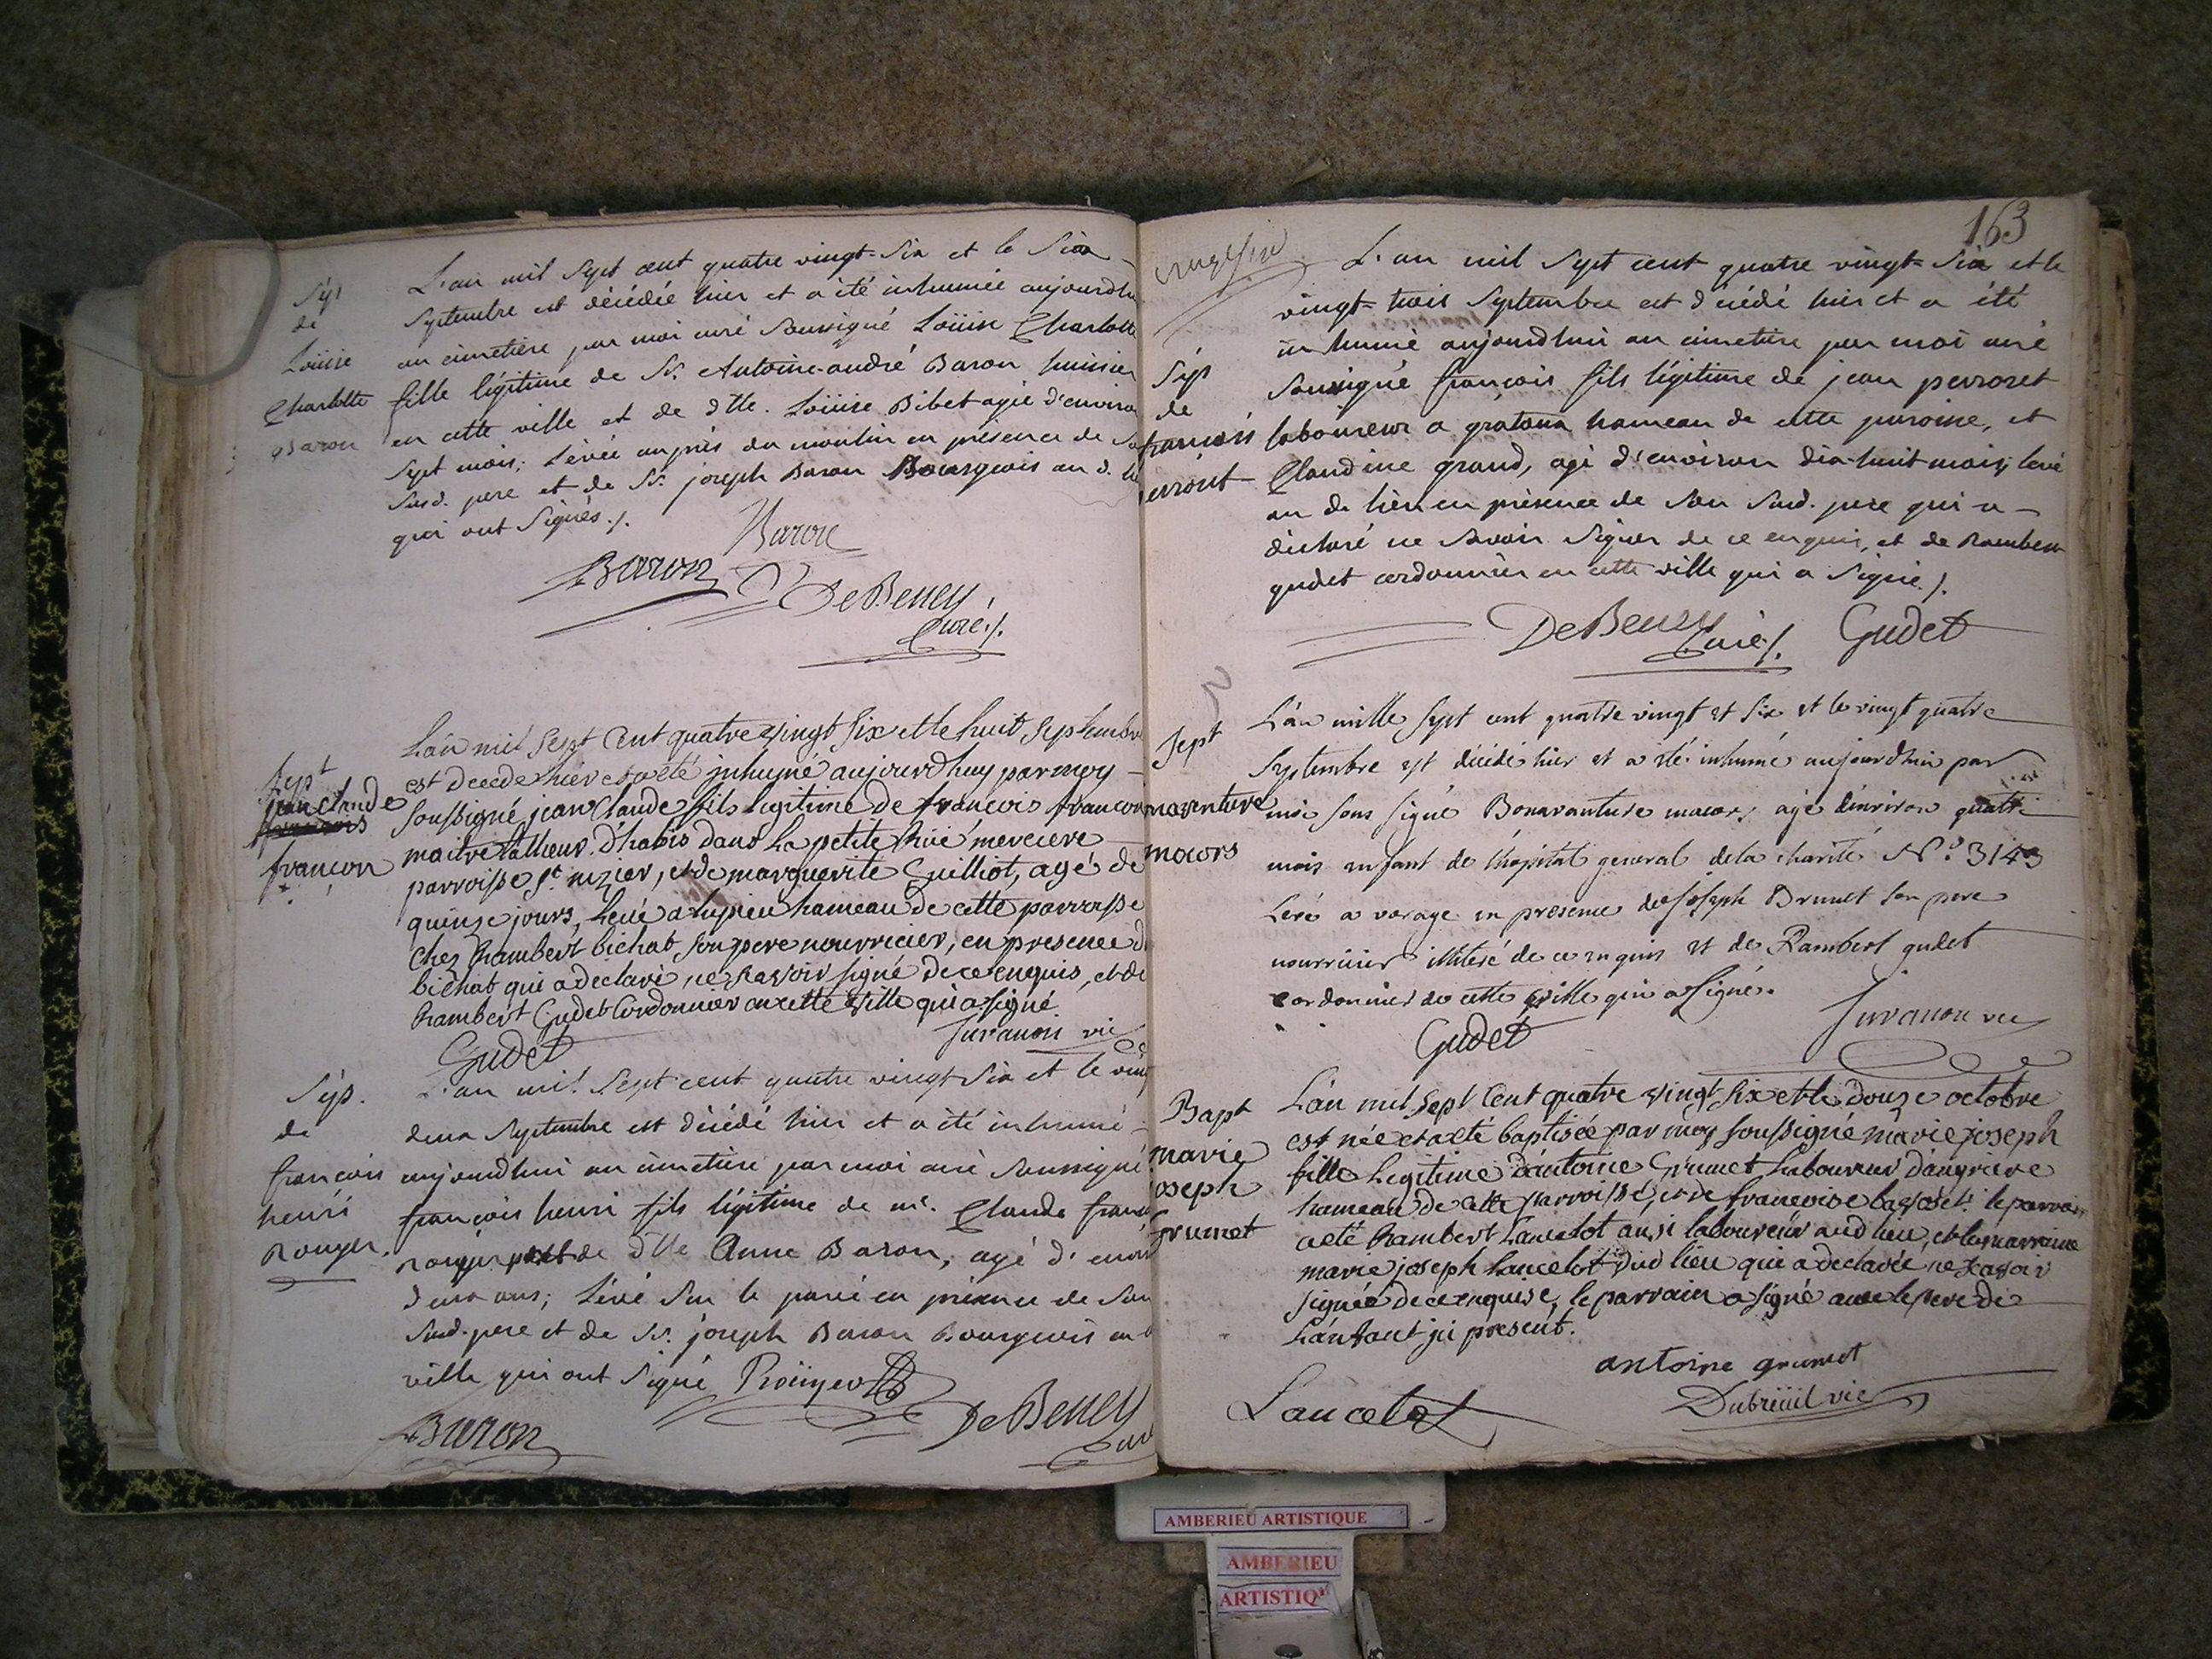 Sép
de
Loüise
Charlotte
Baron
L'an mil sept cent quatre vingt-six et le six
septembre est décédée hier et a été inhumée aujourdhu
au cimetière par moi curé soussigné Loüise Charlotte
fille légitime de Sr. Antoine-andré Baron huissier
en cette ville et de dlle. Loüise Bibet agée d'enviro
sept mois; Levée auprès du moulin en présence de
susd. pere et de Sr. joseph Baron Bourgeois au d.
qui ont signés ./.
Baron
Baron
De Beney
Curé ./.
Sept
jean Claude
françon
L'an mil sept Cent quatre vingt six et le huit septembre
est decedé hier et a eté inhumé aujourdhuy par moy
soussigné, jean Claude fils legitime de francois françon
maitre tailleur d'habis dans la petite Ruë merciere
parroisse St. nizier, et de marguerite Guilliot, agé de
quinze jours, Levé a hameau de cette parroisse
Chez Rambert bichat son pere nourricier, en presence d
bichat qui a declaré ne scavoir signé de ce enquis, et de
Rambert Gudet Cordonnier en cette ville qui a signé
Gudet
Juvanon vic
Sép.
de
françois
henri
Rouyer.
L'an mil sept cent quatre vingt six et le vin
deux septembre est décédé hier et a été inhumé
aujourdhui au cimetière par moi curé soussigné
françois henri fils légitime de mr. Claude franc
et de dlle Anne Baron, agé d'envir
deux ans; Levé sur le pavé en présence de son
susd. pere et de Sr. joseph Baron Bourgeois en
ville qui ont signé
Baron
De Beney
163
L'an mil sept cent quatre vingt-six et le
vingt-trois septembre est décédé hier et a été
inhumé aujourdhui au cimetière par moi curé
soussigné françois fils légitime de jean perroset
laboureur a gratoux hameau de cette paroisse, et
Claudine grand, agé d'environ dix-huit mois; levé
au d. lieu en présence de son susd. pere qui a
déclaré ne savoir signer de ce enquis, et de Rambert
gudet cordonnier en cette ville qui a signé ./.
Sép
de
francois
De Beney
Curé ./.
Gudet
Sept
naventure
macors
L'an mille sept cent quatre vingt et six et le vingt quatre
septembre est décédé hier et a été inhumé aujourdhui par
moi sous signé Bonavanture macors agé d'environ quatre
mois enfant de l'hopital general de la charité N.° 3143
Levé a vorage en presence de joseph Brunet son pere
nourricier illiteré de ce enquis et de Rambert gudet
cordonnier de cette ville qui a signé.
Gudet
Juvanon vic
Bapt
marie
joseph
Grumet
L'an mil sept Cent quatre vingt six et le douze octobre
est née et a eté baptisée par moy soussigné marie joseph
fille Legitime d'antoine Grumet Laboureur d'angrieve
hameau de cette parroisse, et de francoise le parrain
a eté Rambert Lancelot aussi laboureur aud lieu, et la marraine
marie joseph Lancelot dud lieu qui a declarée ne scavoir
signée de ce enquise, le parrain a signé avec le pere de
L'anfant ici present.
antoine grumet
Lancelot
Dubreüil vic
AMBERIEU ARTISTIQUE
AMBERIEU
ARTISTIQ